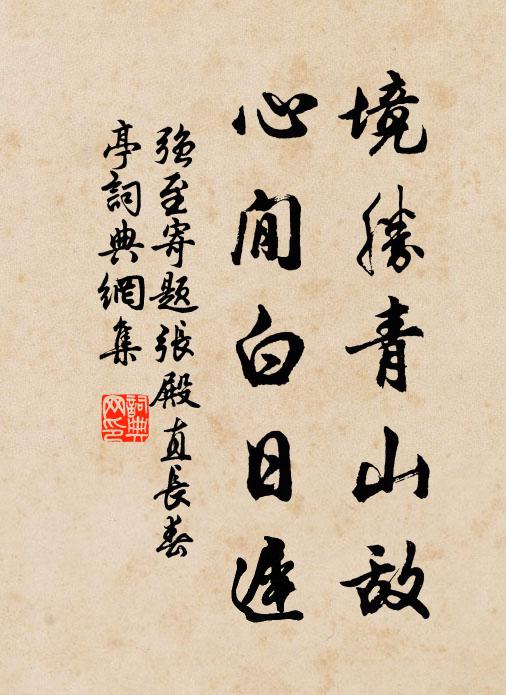 境勝青山敌
心閒白日遲
强至寄题張殿直長春
亭詞典網集
詞典
网印